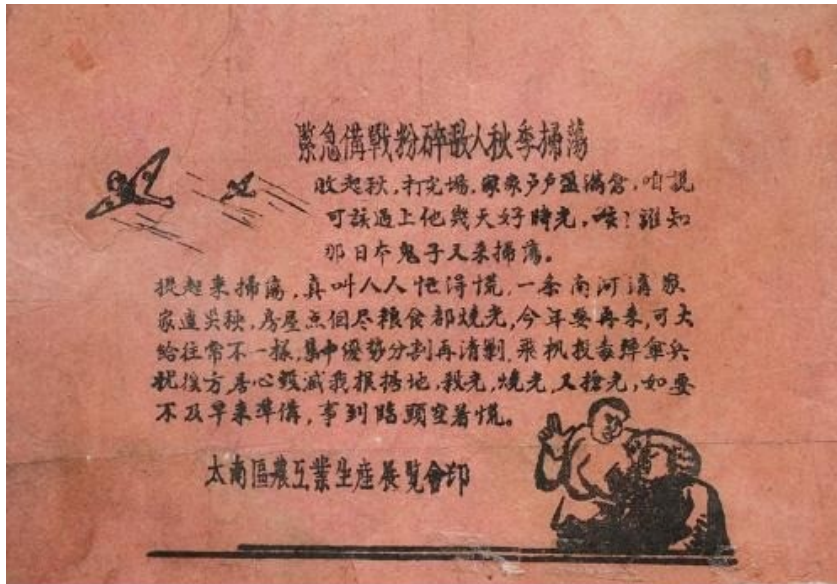 緊急備戰粉碎敵人秋季掃蕩
收起秋，打完場，家家戶戶盈滿倉，咱說
可該過上他幾天好時光，唉！誰知
那日本鬼子又来掃蕩。
提起来掃蕩，真叫人人怕得慌，一条南河溝家
家遭災殃，房屋点個尽粮食都燒光，今年要再来，可大
給往常不一樣，集中優势分割再清剿，飛机投毒弹傘兵
扰後方居心毁滅我根据地，殺光，燒光，又搶光，如要
不及早来準備，事到臨頭空着慌。
太南區農工業生産展覽會印